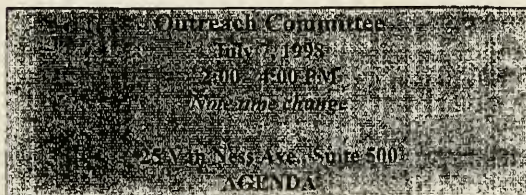 Outreach Committee
July 7, 1998
2:00 - 4:00 P.M.
Note time change
25 Van Ness Ave., Suite 500
AGENDA